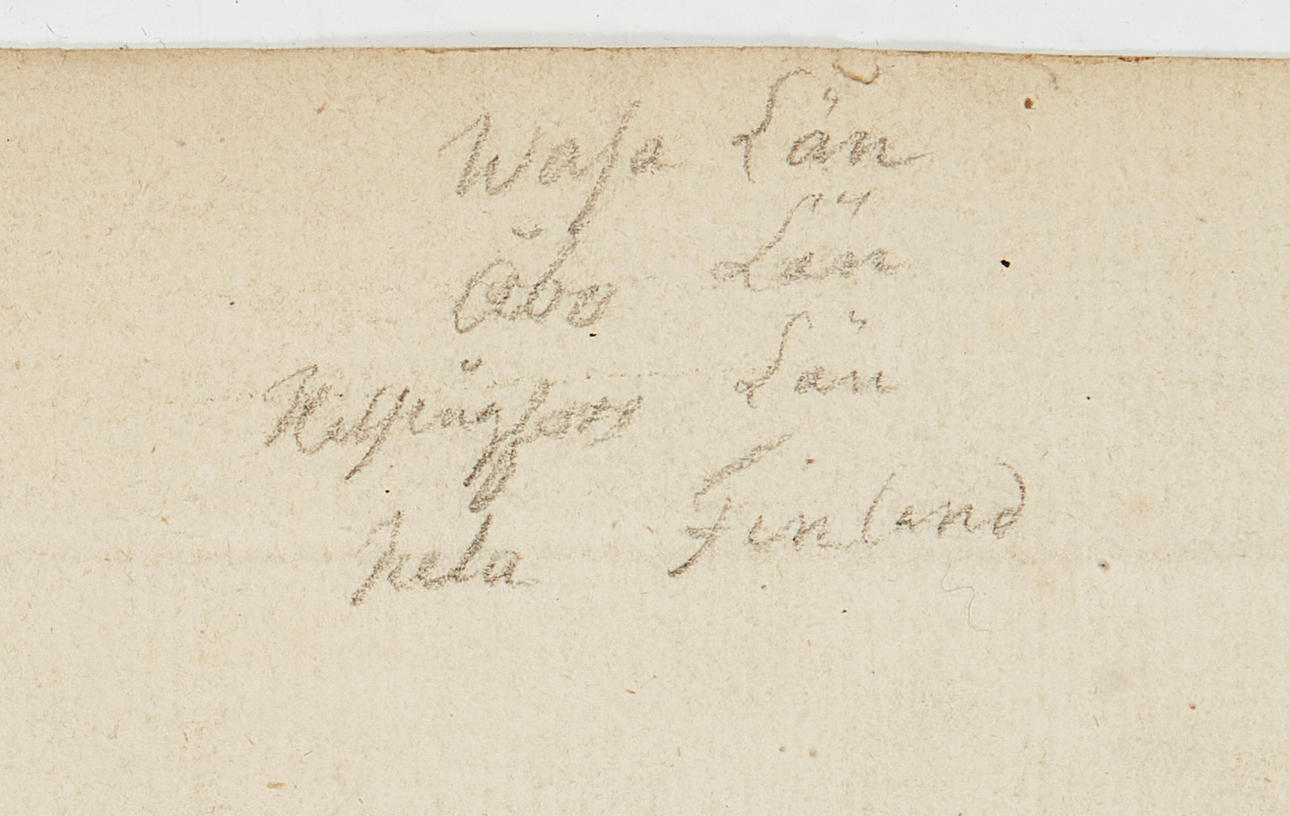 Wasa Län
Åbo Län
Helsingfors Län
hela Finland